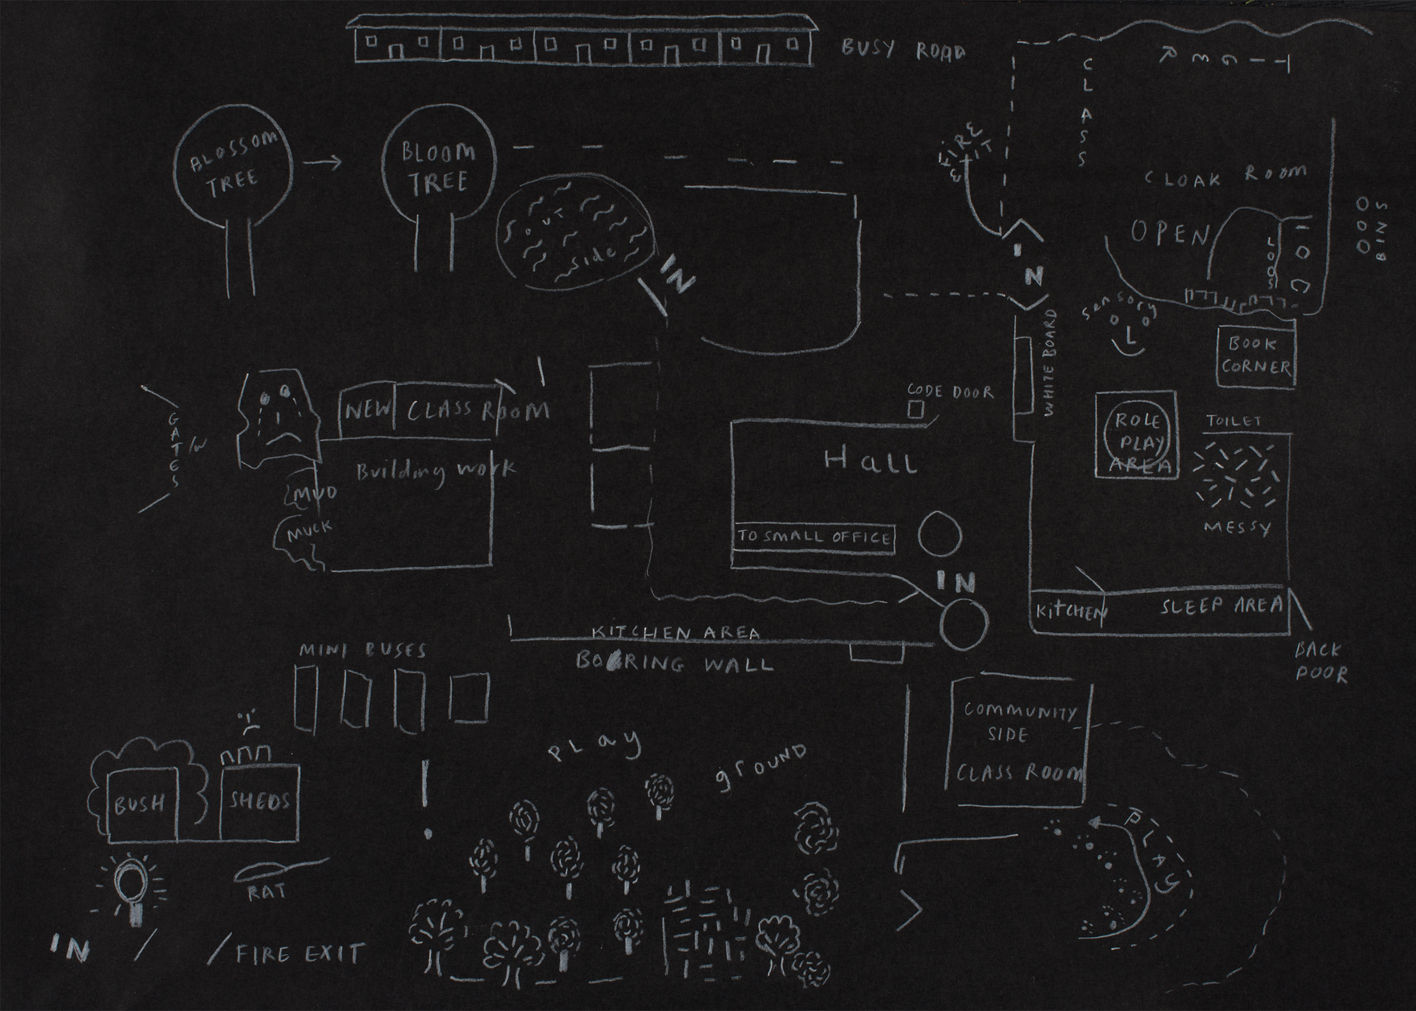 BUSY ROAD
TIGER
CLASS
BLOSSOM
TREE
BLOOM
TREE
FIRE
EXIT
CLOAK ROOM
OPEN
LOOS
BINS
OUT
Side
IN
IN
Sensory
WHITE BOARD
BOOK
CORNER
CODE DOOR
ROLE
PLAY
AREA
TOILET
MESSY
GATES
IN
NEW CLASS ROOM
Building work
MUD
MUCK
Hall
TO SMALL OFFICE
IN
KITCHEN
SLEEP AREA
BACK
DOOR
KITCHEN AREA
BORING WALL
MINI BUSES
COMMUNITY
SIDE
CLASS ROOM
PLAY
GROUND
BUSH
SHEDS
PLAY
RAT
IN / / FIRE EXIT